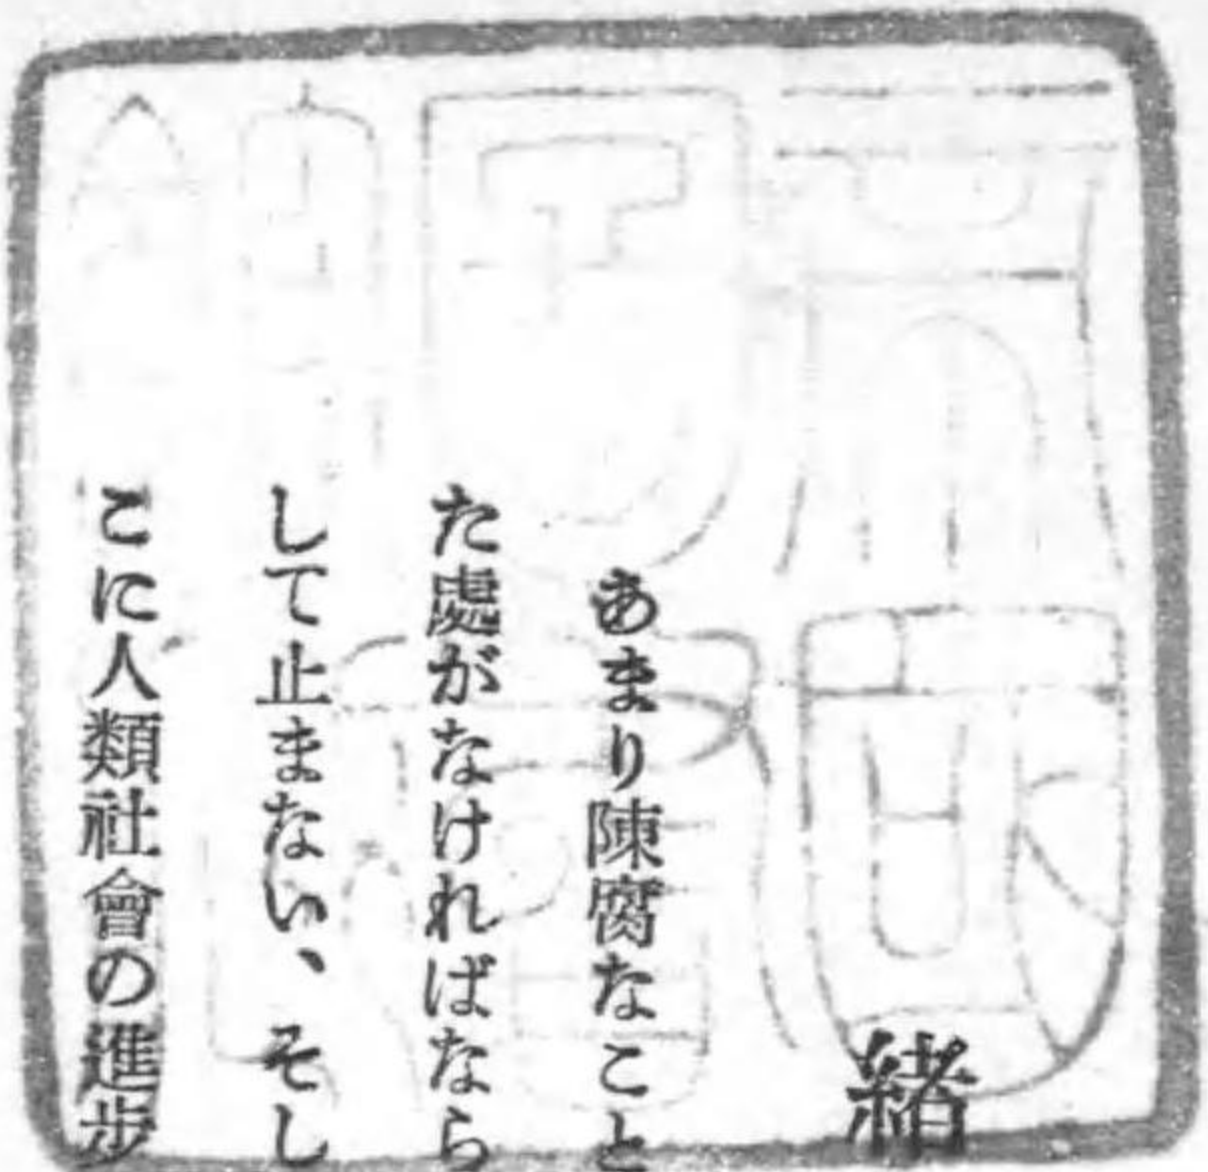 緒
あまり陳腐なこと
た處がなければなら
して止まない、そし
こに人類社會の進步